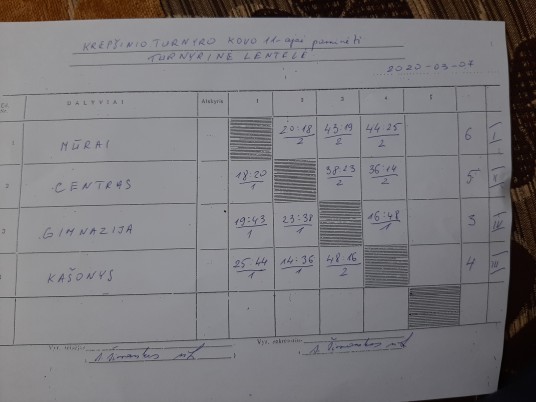 KREPŠINIO TURNYRO KOVO 11-ajai paminėti
TURNYRINĖ LENTELĖ
2020-03-07
Eil. Nr. DALYVIAI 1 2 3 4 5
1 MŪRAI 20:18/2 43:19/2 44:25/2 6 I
2 CENTRAS 18:20/1 38:23/2 36:14/2 5 II
3 GIMNAZIJA 19:43/1 23:38/1 16:48/1 3 IV
KAŠONYS 25:44/1 14:36/1 48:16/2 4 III
Vyr. teisėjas
Vyr. sekretorius